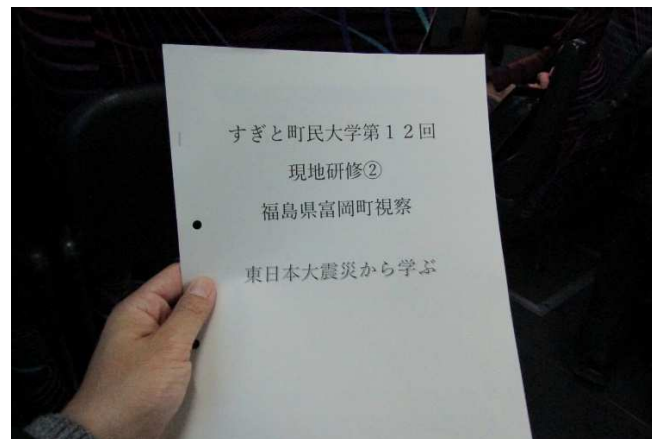 すぎと町民大学第１２回
現地研修②
福島県富岡町視察
東日本大震災から学ぶ